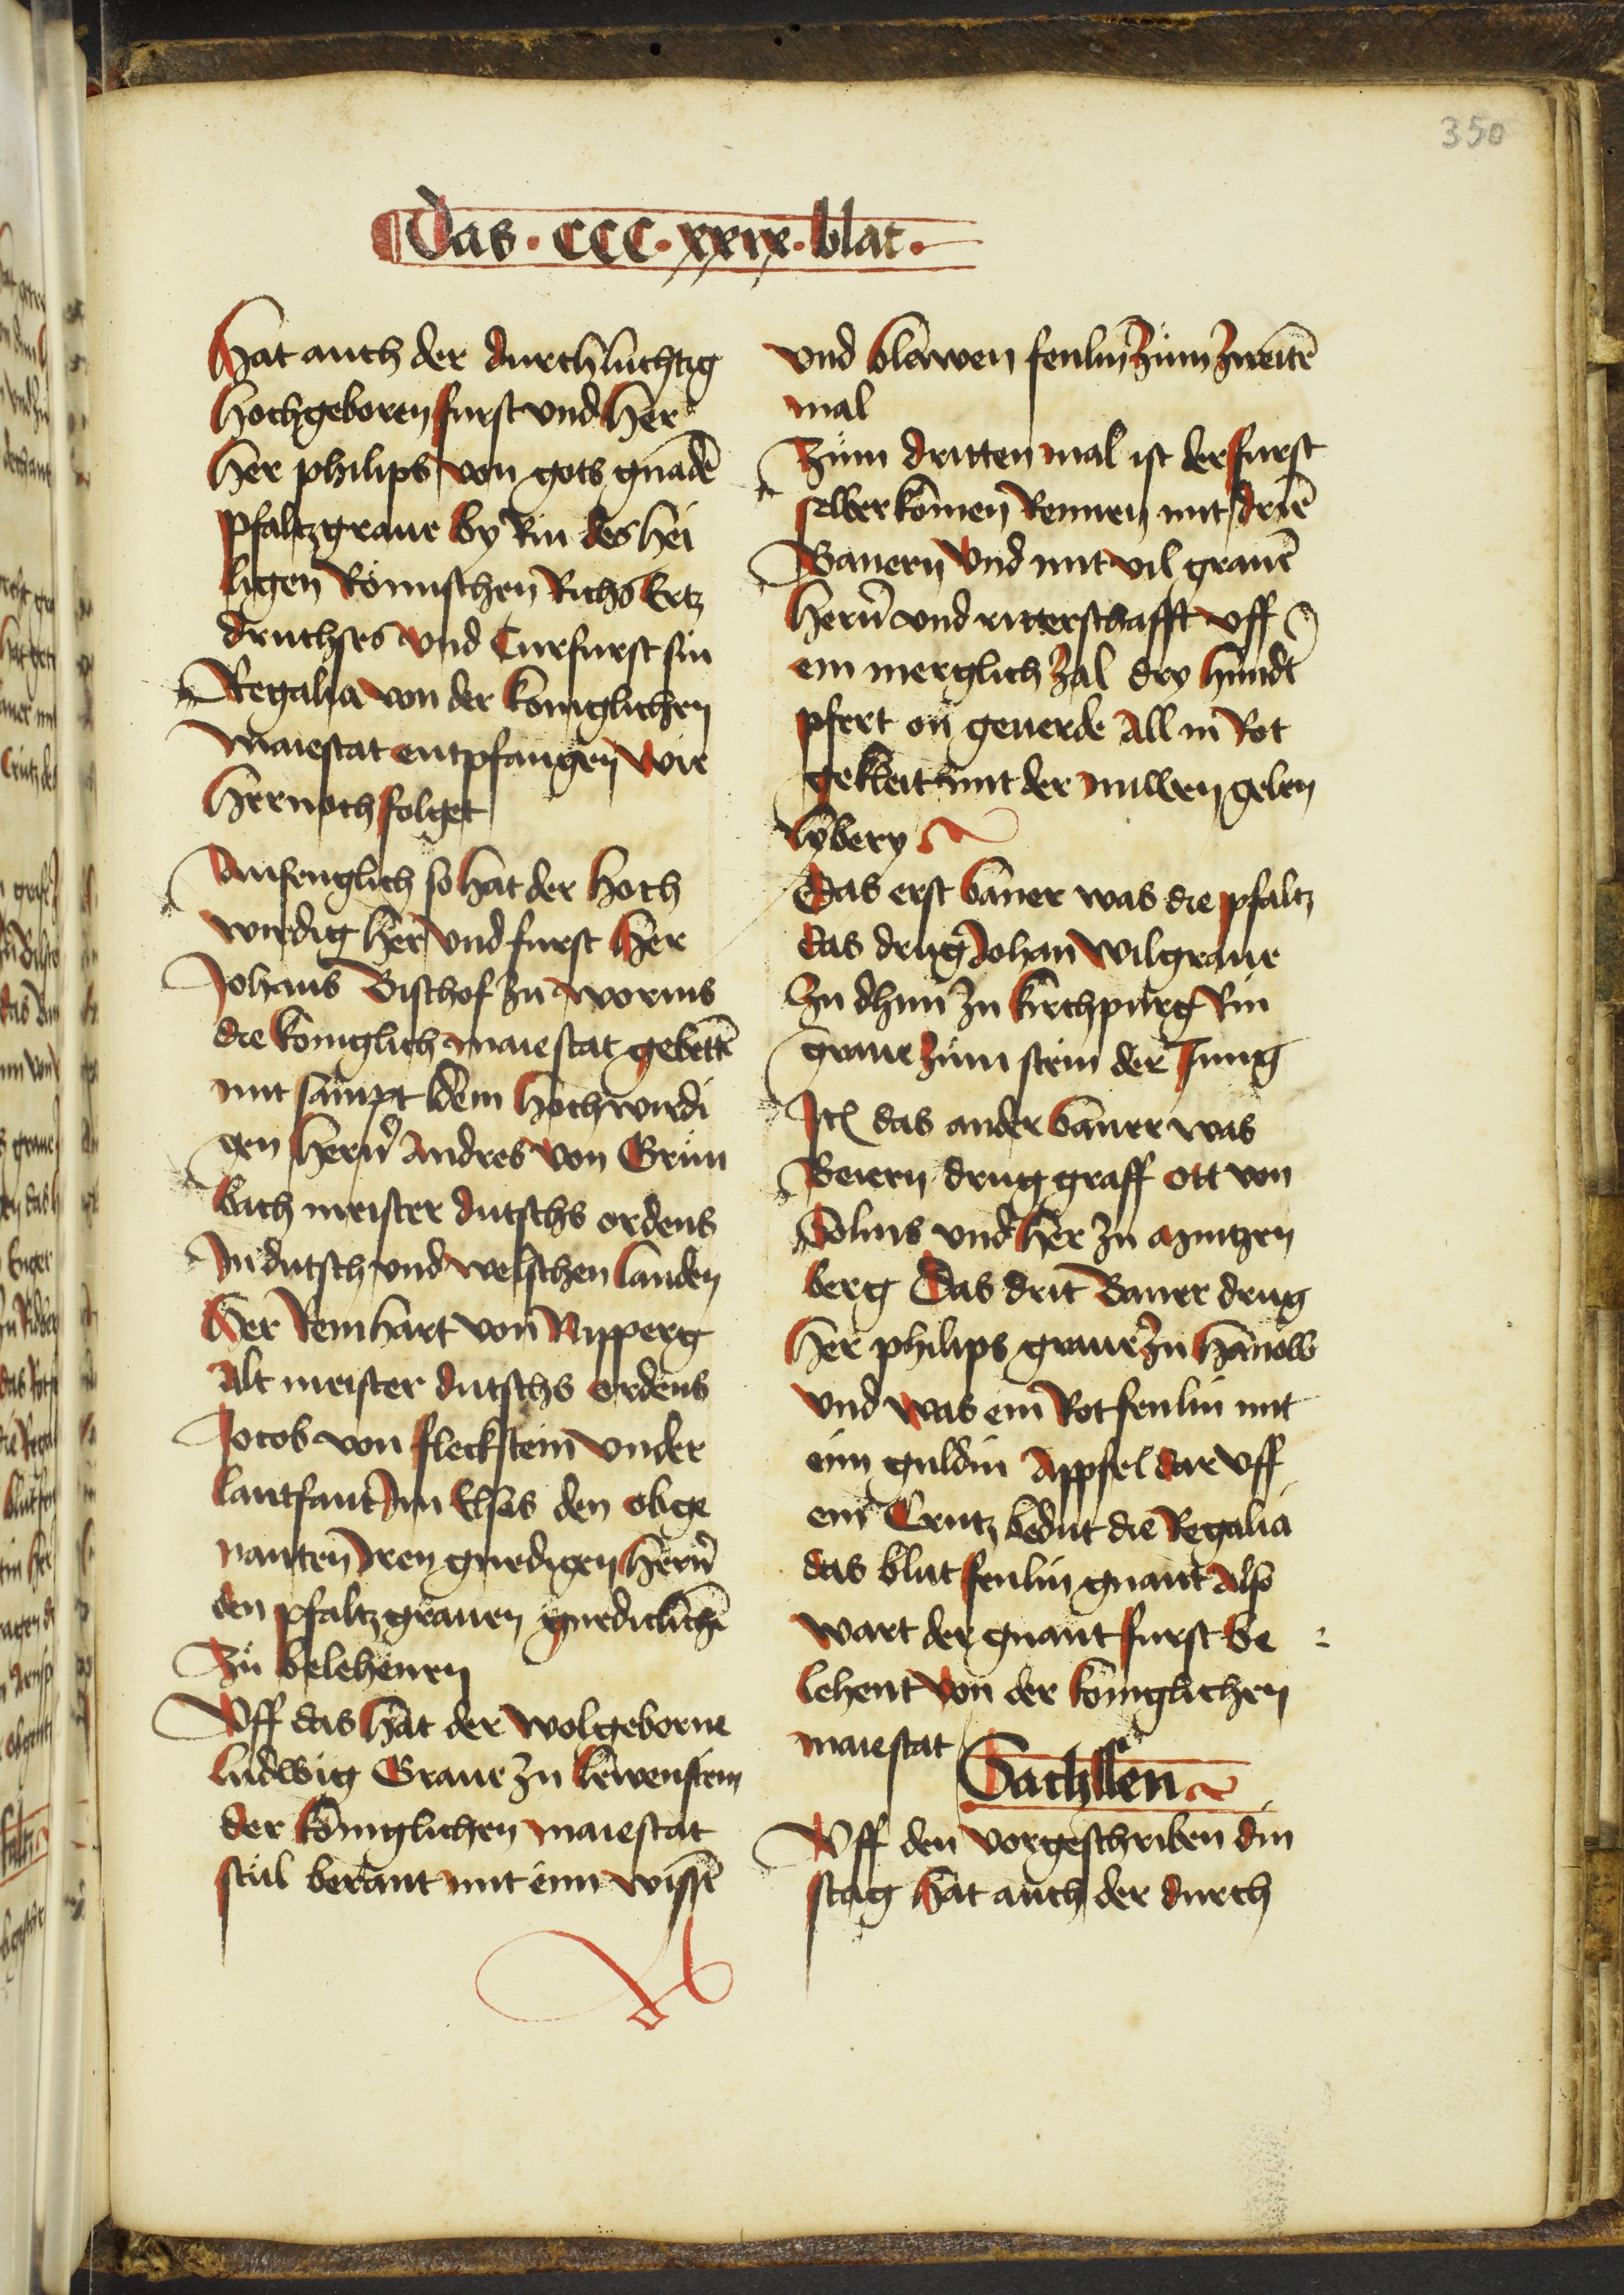 350
Das · CCC · xxix · blat ·
Hat auch der durchluchtig
hochgeboren furst vnd her
her philips von gots gnadē
pfaltzgraue by Rin des hei
ligen Römischen Richs Ertz
druchses vnd Curfurst sin
Regalia von der koniglichen
maiestat entpfangen wie
hernoch folget
Anfenglich so hat der hoch
wirdig her vnd furst her
Johans Bischof zu worms
die koniglich maiestat gebettē
mit sampt dem hochwirdi
gen hern̄ Andres von Grun
bach meister dutschs ordens
In dutsch vnd welschen landen
her Reinhart von Nipperg
Alt meister dutschs ordens
Jocob von fleckstein vnder
lantfaut Im Elsas den obge
nanten Iren gnedigen hern̄
den pfaltzgrauen gnediclichē
Zu belehenen
Vff das hat der wolgeborne
ludwig Graue zu lewenstein
der koniglichen maiestat
stul berant mit eim wissē
vnd blawen fenlin zum zweitē
mal
Zum dritten mal ist der furst
selber komen Rennen mit driē
Banern vnd mit vil grauē
hern̄ vnd ritterschafft vff
ein merglich zal dry hundt
pfert on geuerde All in Rot
gekleit mit der nuwen gelen
lybery
Das erst baner was die pfaltz
das drug Johan wilgraue
zu dhun zu kirchpurg Rin
graue zum stein der Jung
Itē das ander baner was
Beiern drug graff ott von
Solms vnd her zu mintzen
berg Das drit Baner drug
her philips graue zu hanow
vnd was ein Rot fenlin mit
eim guldin Appfel dar vff
ein Crutz bedut die Regalia
das blut fenlin gnant Also
wart der gnant furst be
lehent von der koniglichen
maiestat
Sachssen
Vff den vorgeschriben din
stag hat auch der durch